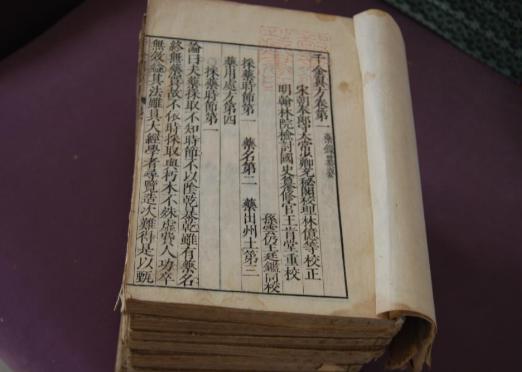 千金翼方卷第一 藥錄纂要
宋朝太郎守太常少卿充秘閣校理林億等校正
明翰林院檢討國史纂修官王肯堂重校
孫雲仍廷鑑同校
採藥時節第一 藥名第二 藥出州土第三
藥用處方第四
採藥時節第一
論曰夫藥採取不知時節不以陰乾暴乾雖有藥名
終無藥實故不依時採取與朽木不殊虛費人功卒
無效益其法雖具大經學者尋覽造次難得是以甄